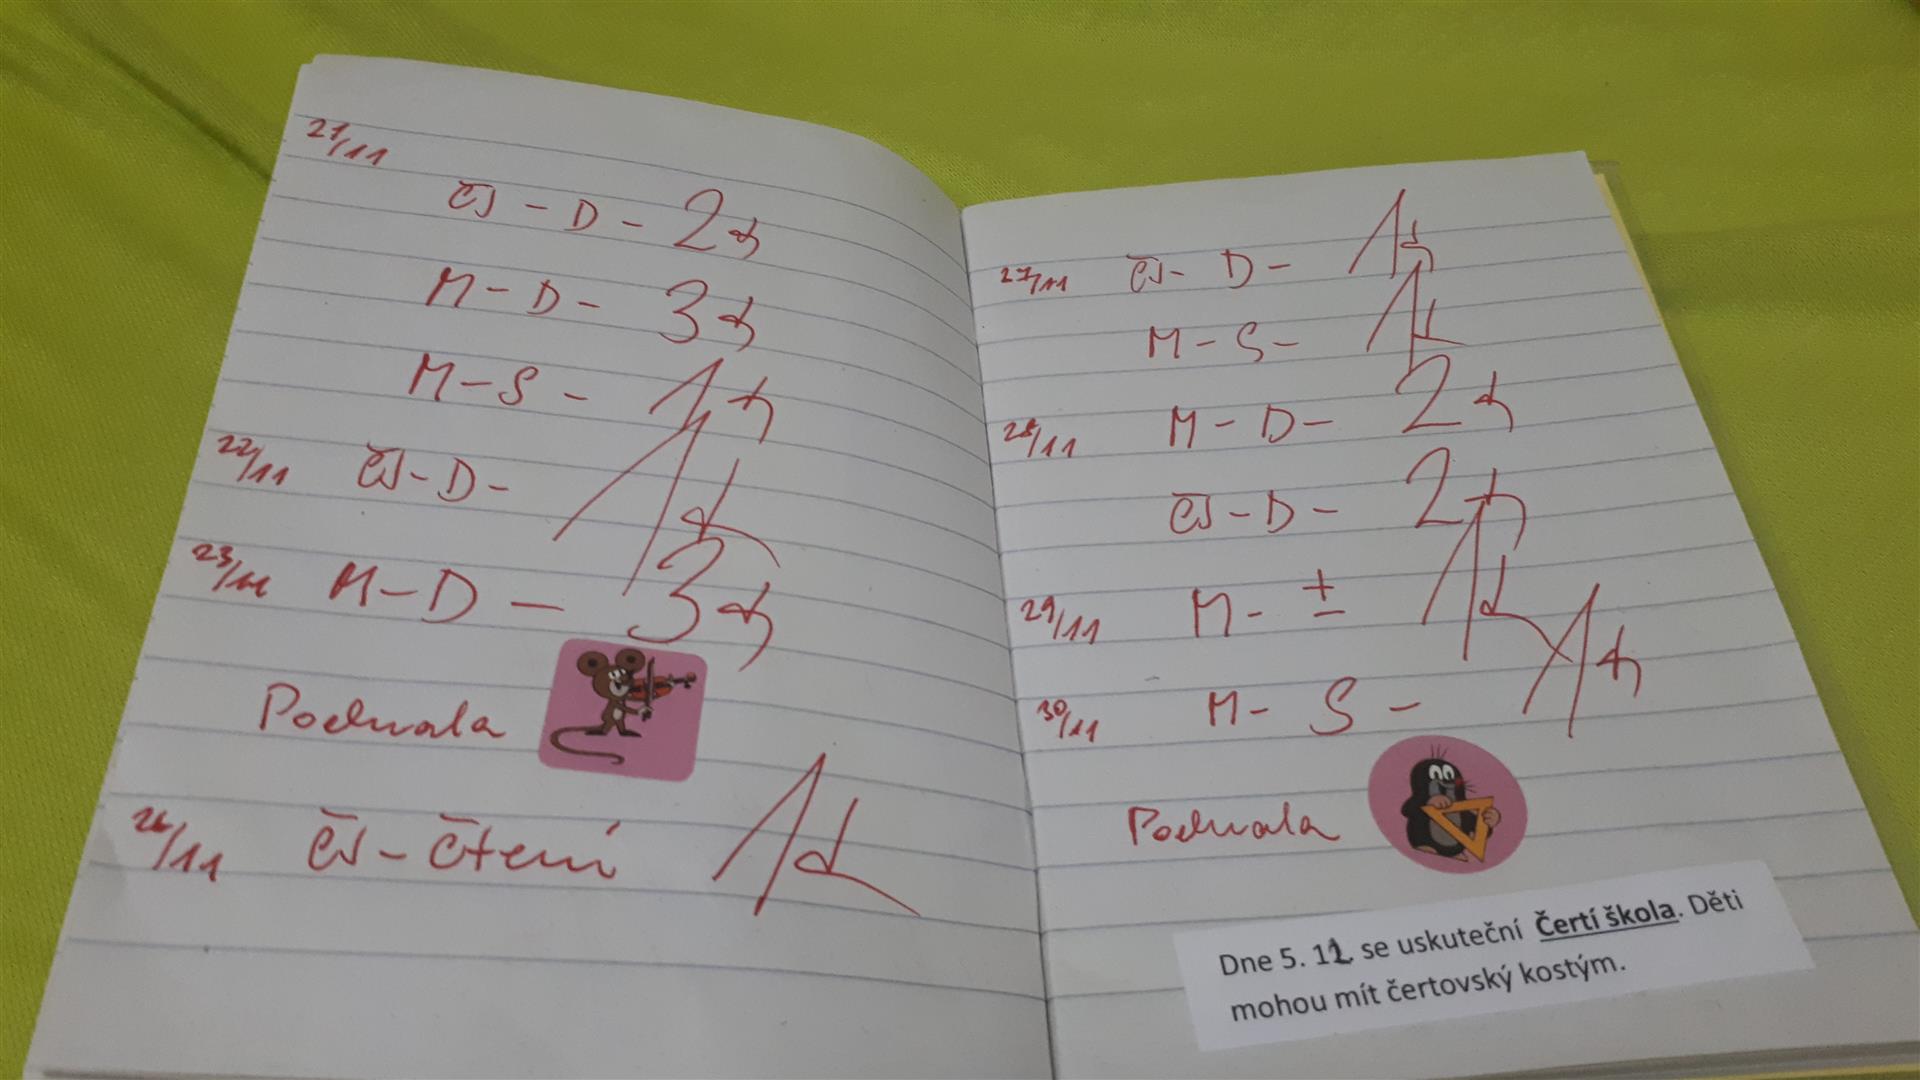 21/11
ČJ - D - 2
M - D - 3
M - S - 1
22/11 ČJ - D - 1
23/11 M - D - 3
Pochvala
26/11 ČJ - čtení 1
27/11 ČJ - D - 1
M - S - 1
28/11 M - D - 2
ČJ - D - 2
29/11 M - ± 1
30/11 M - S - 1
Pochvala
Dne 5. 12. se uskuteční Čertí škola. Děti
mohou mít čertovský kostým.